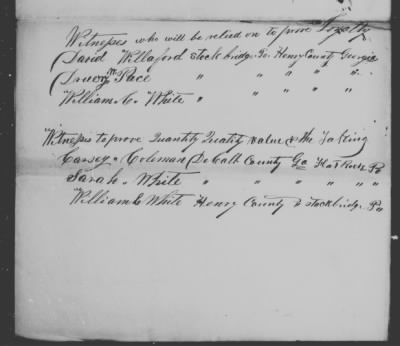 Witnesses who will be relied on to prove Loyalty
David Willaford Stockbridge Po. Henry County Georgia
Drury M Pace " " " " "
William C. White " " " "
Witness to prove Quantity Quality value & the Taking
Cassey Coleman DeKalb County Ga Flat Rock Po
Sarah White " " " " " "
William C White Henry County " Stockbridge Po "